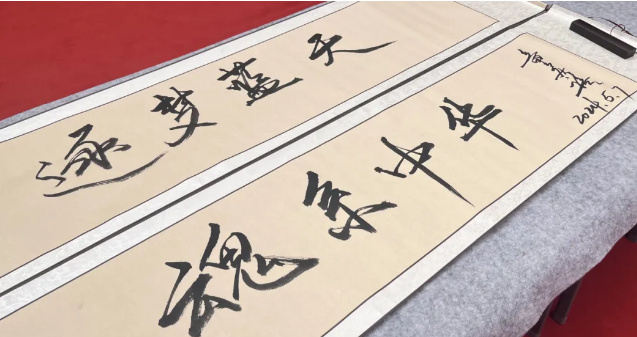 逐梦蓝天
魂系中华
2024.5.7